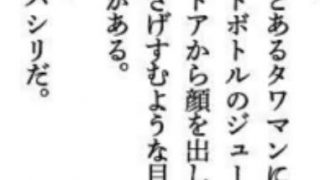 とあるタワマンに
トボトルのジュー
ドアから顔を出し
さげすむような目
がある。
スシリだ。